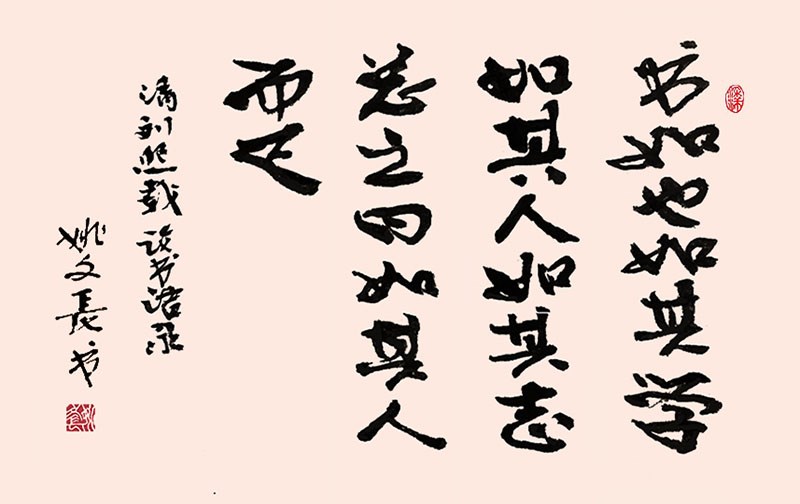 书如也如其学
如其人如其志
总之曰如其人
而已
清刘熙载书语录
姚文長书